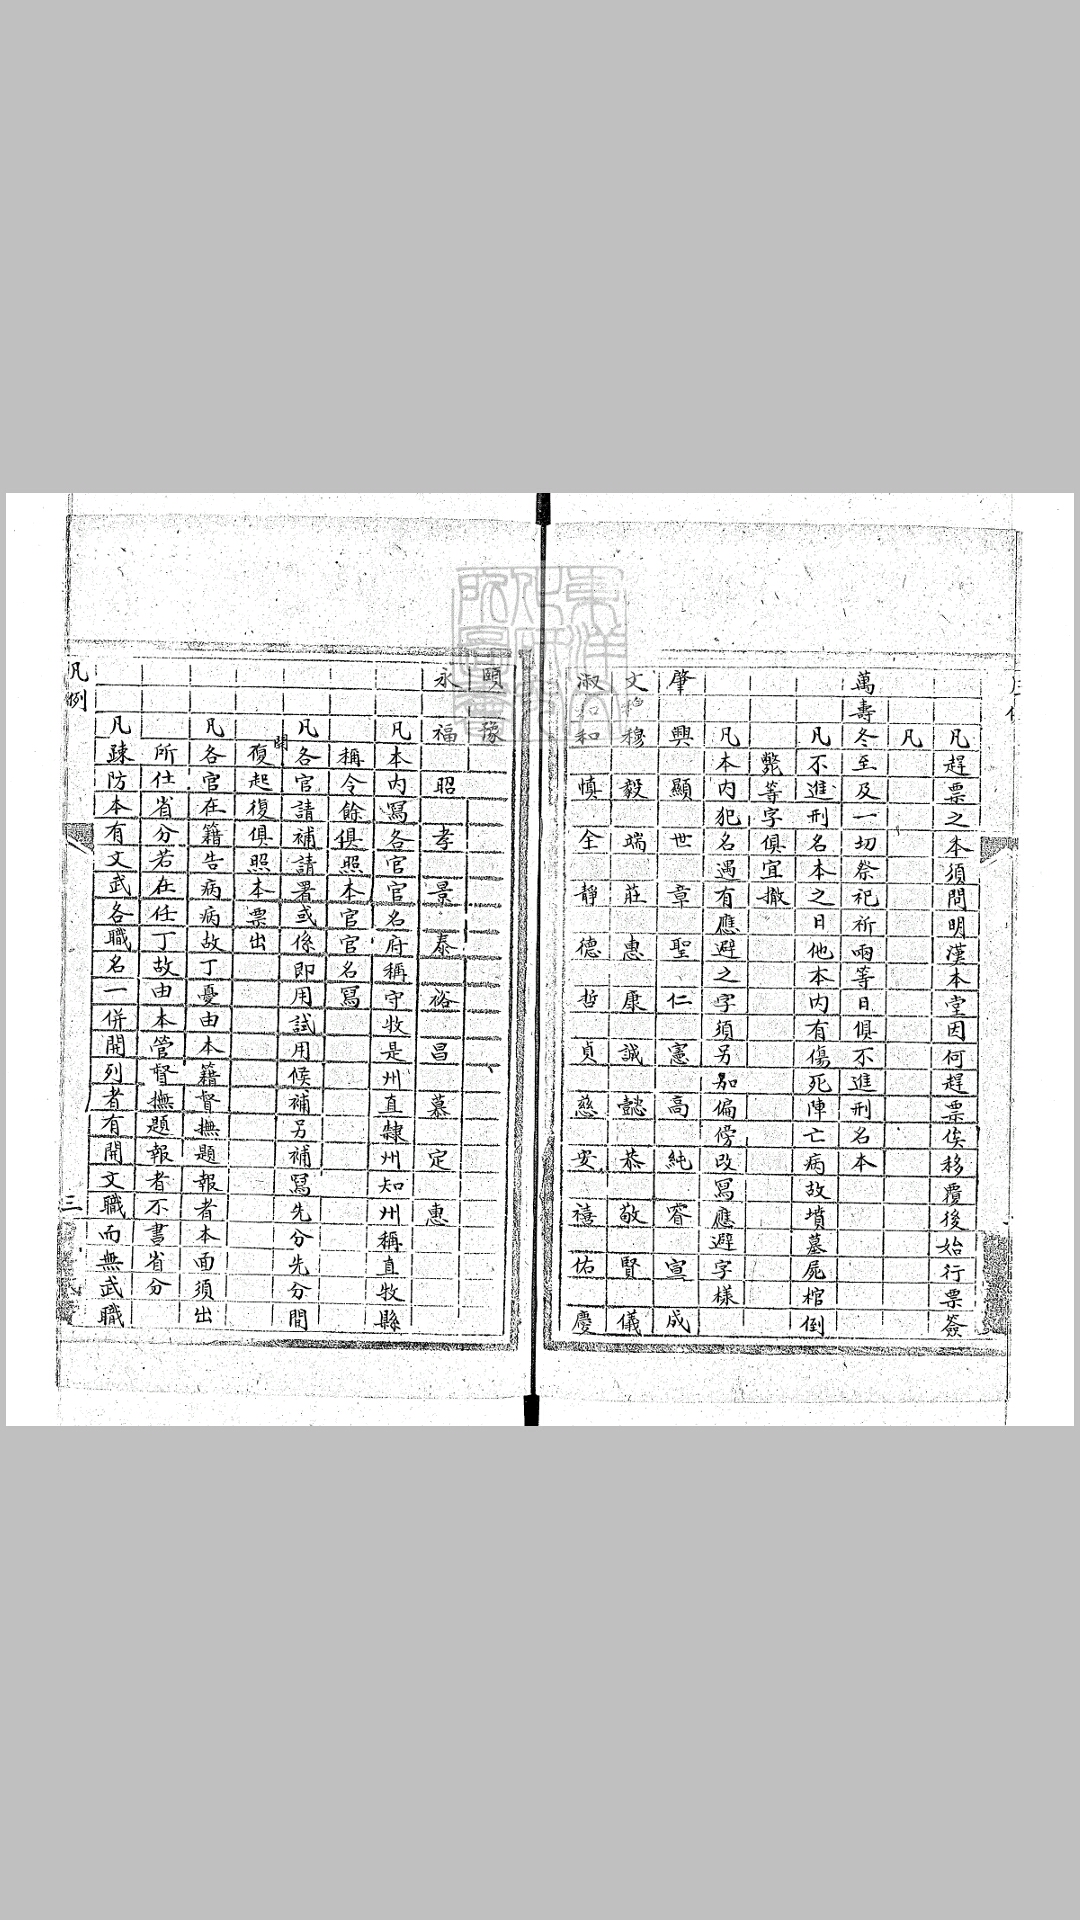 凡趕票之本須問明漢本堂因何趕票俟移覆後始行票簽
凡
萬壽冬至及一切祭祀祈雨等日俱不進刑名本
凡不進刑名本之日他本內有傷死陣亡病故墳墓屍棺倒
斃等字俱宜撤
凡本內犯名遇有應避之字須另寫偏傍改寫應避字樣
肇興顯世章聖仁憲高純睿宣成
文穆毅端莊惠康誠懿恭敬賢儀
淑和慎全靜德哲貞慈安禧佑慶
頤豫
永福昭孝景泰裕昌慕定惠
凡本內寫各官官名府稱守牧是州直隸州知州稱直牧縣
稱令餘俱照本官官名寫
凡各官請補請署或係即用試用候補另補寫先分先分間
開復起復俱照本票出
凡各官在籍告病病故丁憂由本籍督撫題報者本面須出
所仕省分若在任丁故由本管督撫題報者不書省分
凡疎防本有文武各職名一併開列者有開文職而無武職
凡例
三